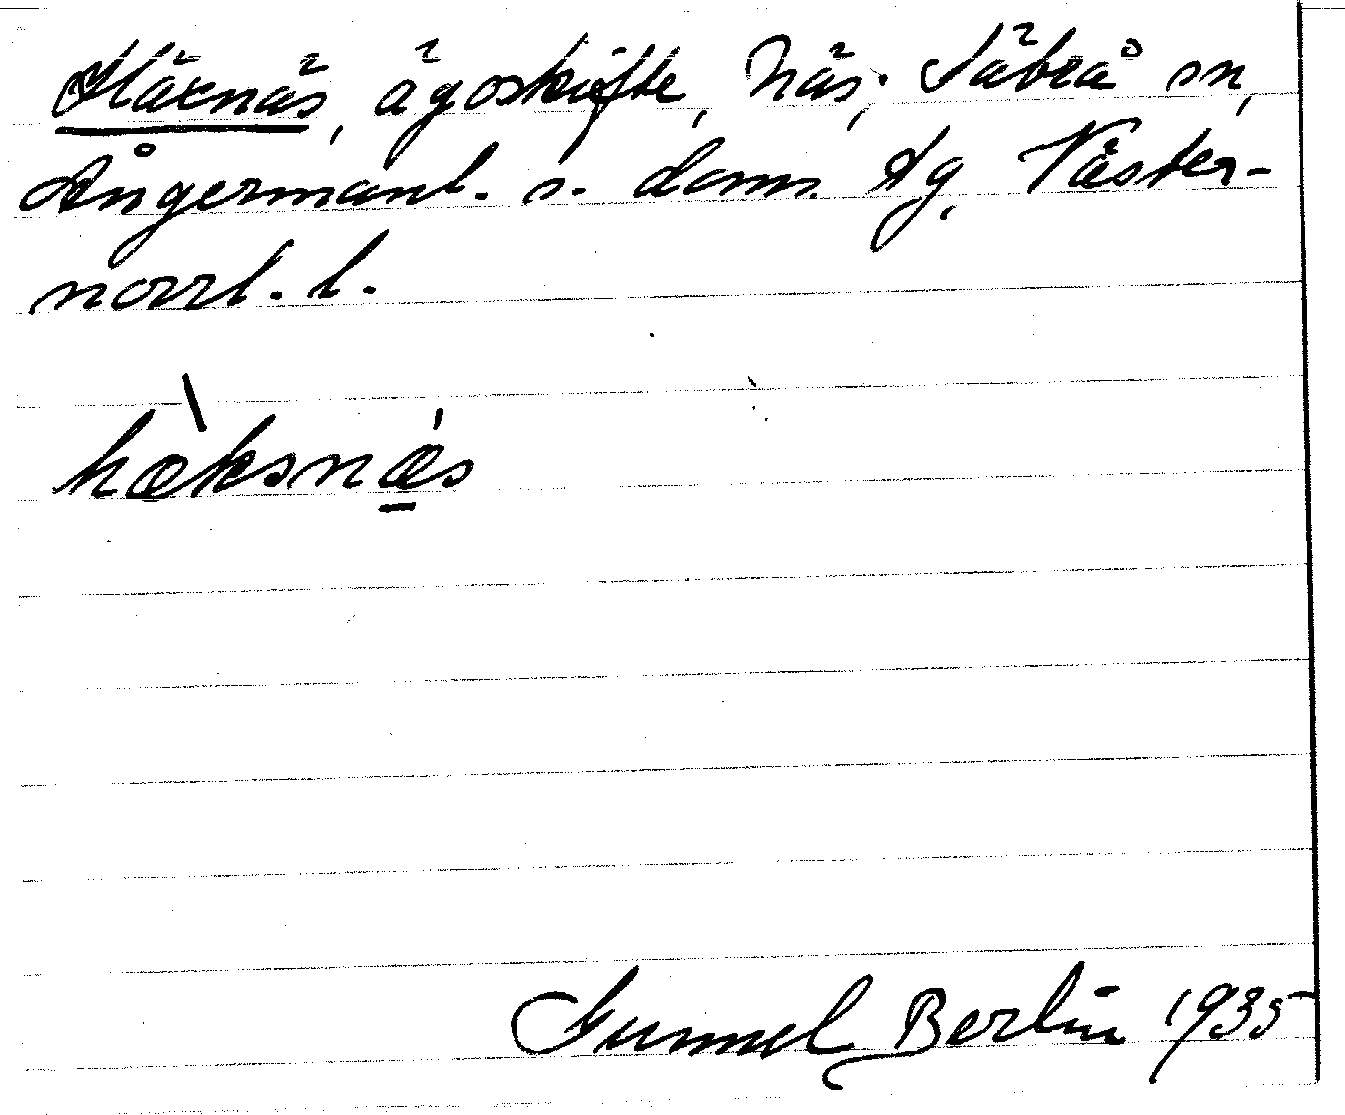 Häxnäs, ägoskifte, Näs, Säbrå sn,
Ångermanl. s. doms. dg, Väster-
norrl. l.
hæksnæs
Gunnel Berlin 1935